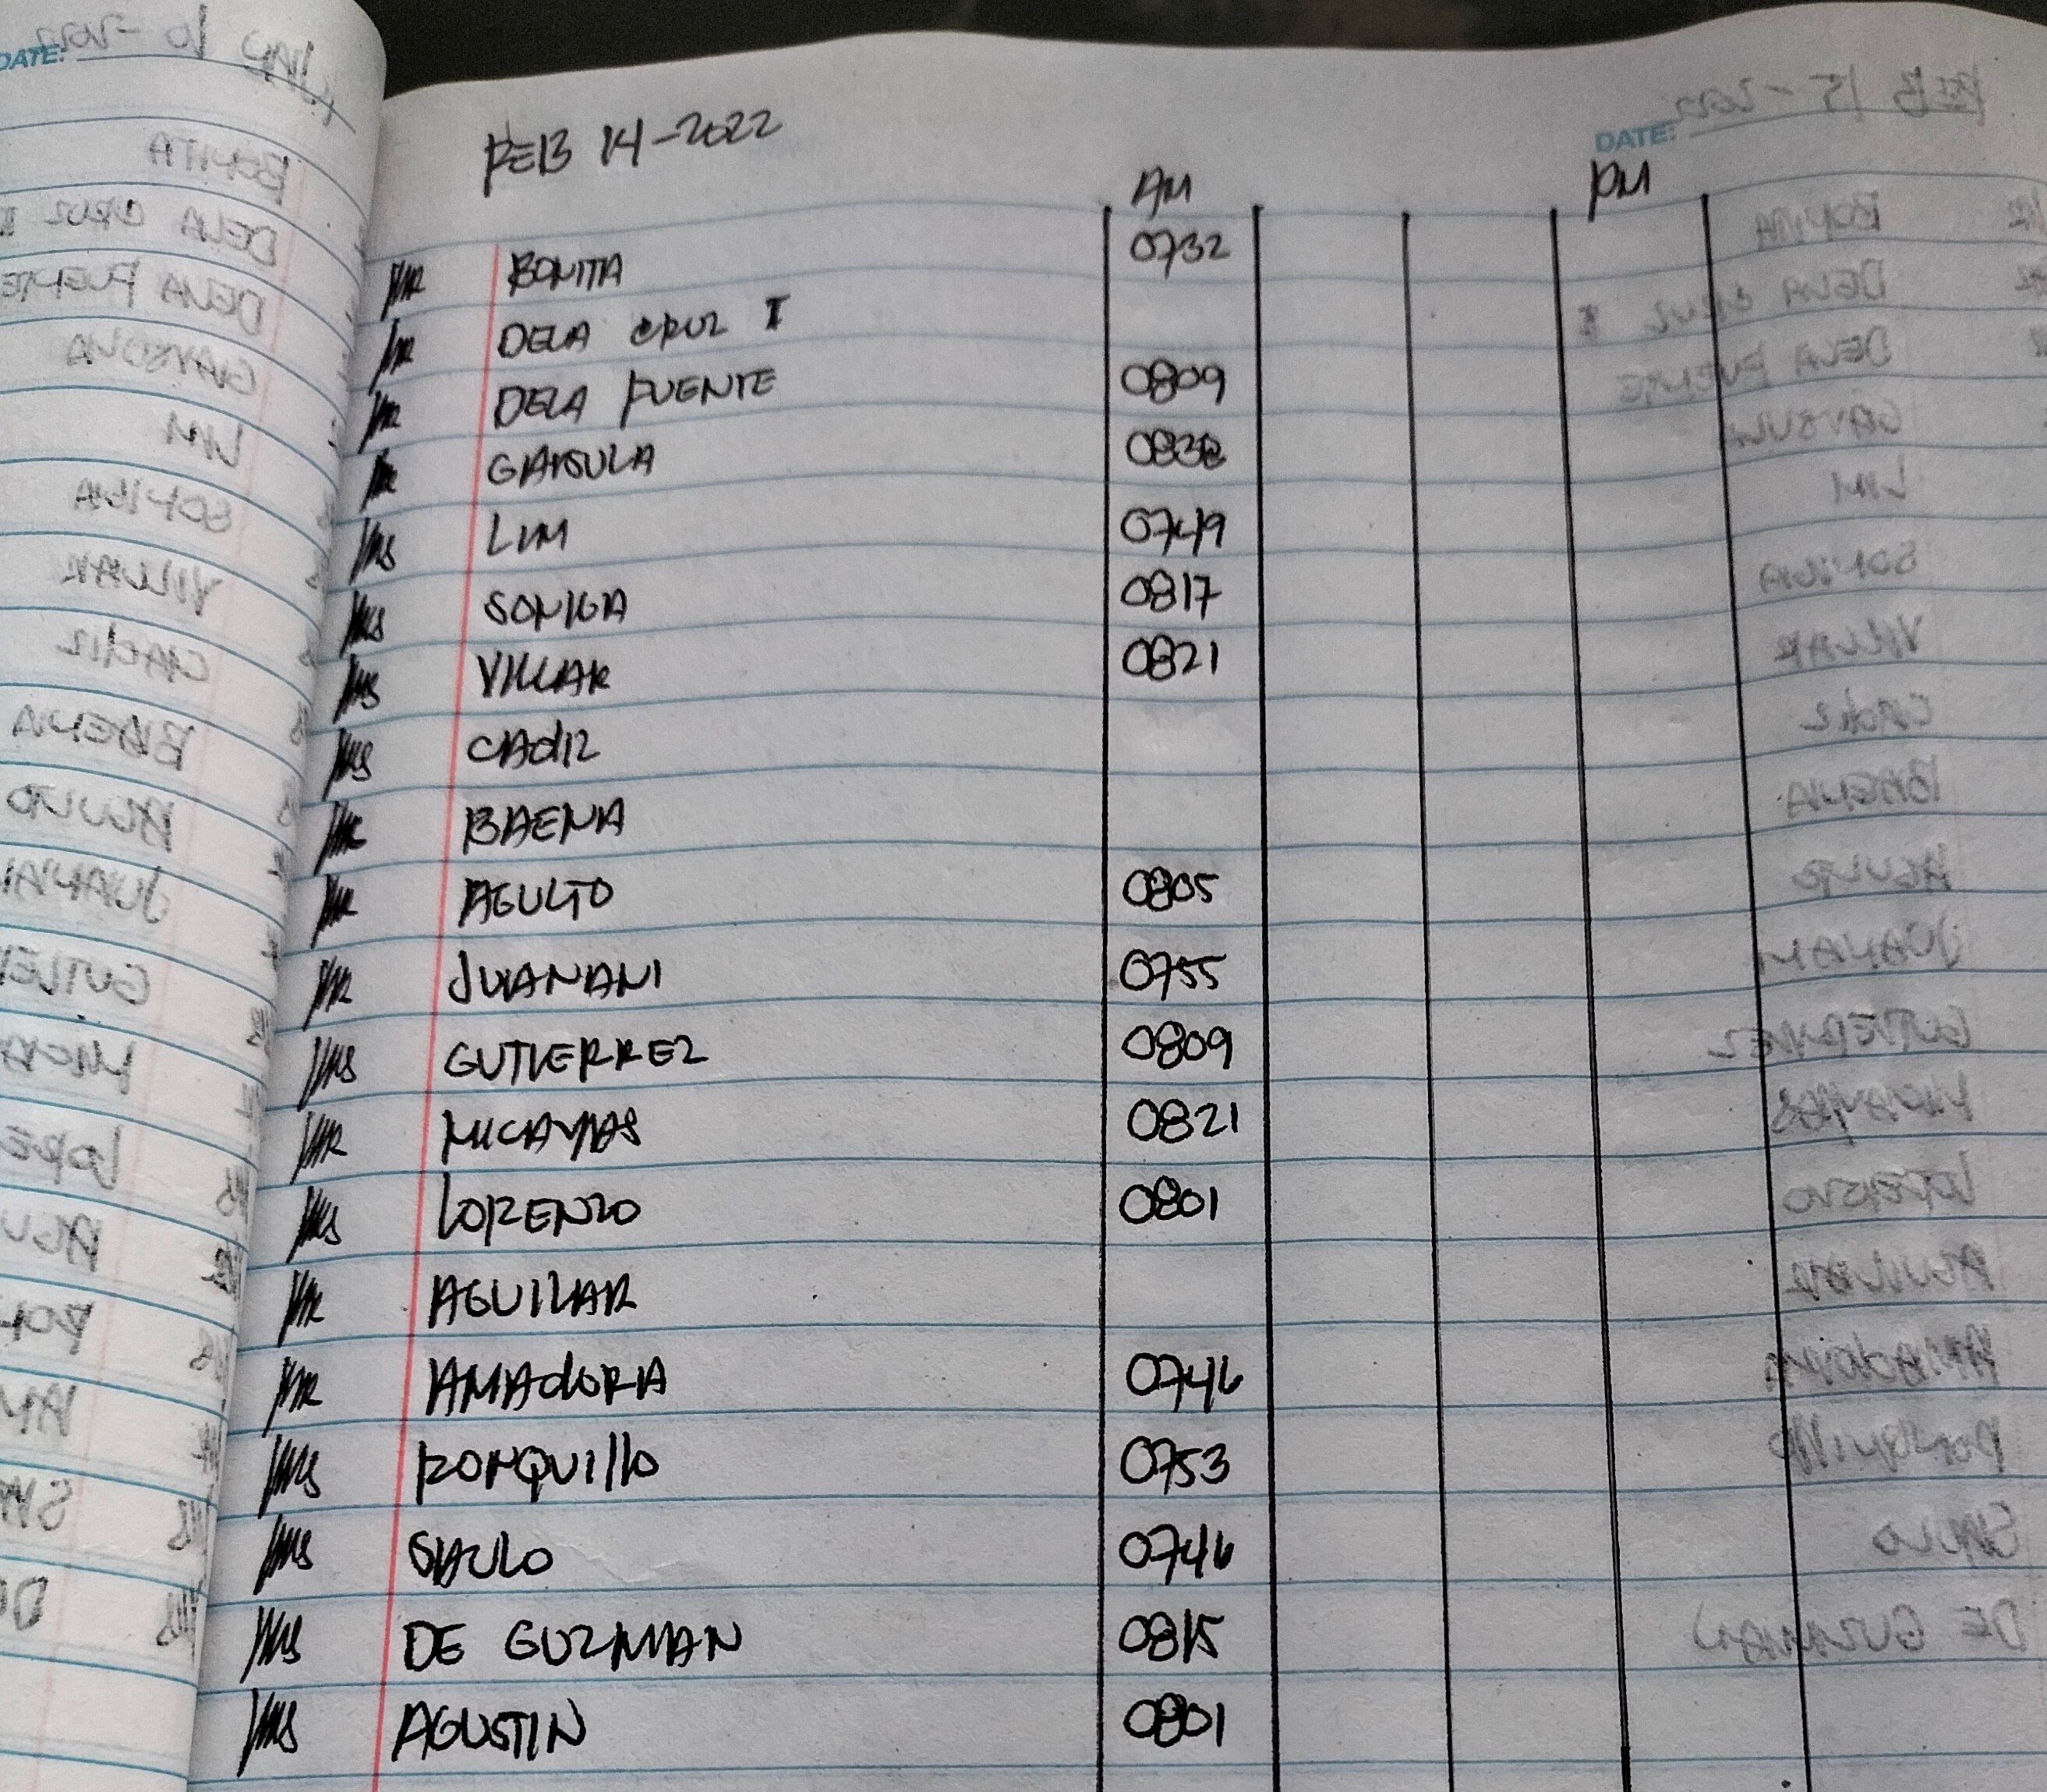 FEB 14-2022
DATE:
AM PM
MR BONITA 0732
MR DELA CRUZ I
MR DELA FUENTE 0809
MR GAYSULA
MS LIM 0749
MS SONIGA 0817
MS VILLAR 0821
MS CADIZ
MR BAENA
MR AGULTO 0805
MR JUANANI 0755
MS GUTIERREZ 0809
MR MICAYAS 0821
MS LORENZO 0801
MR AGUILAR
MR AMADORA 0746
MS RONQUILLO 0753
MS SAULO 0746
MS DE GUZMAN 0815
MS AGUSTIN 0801